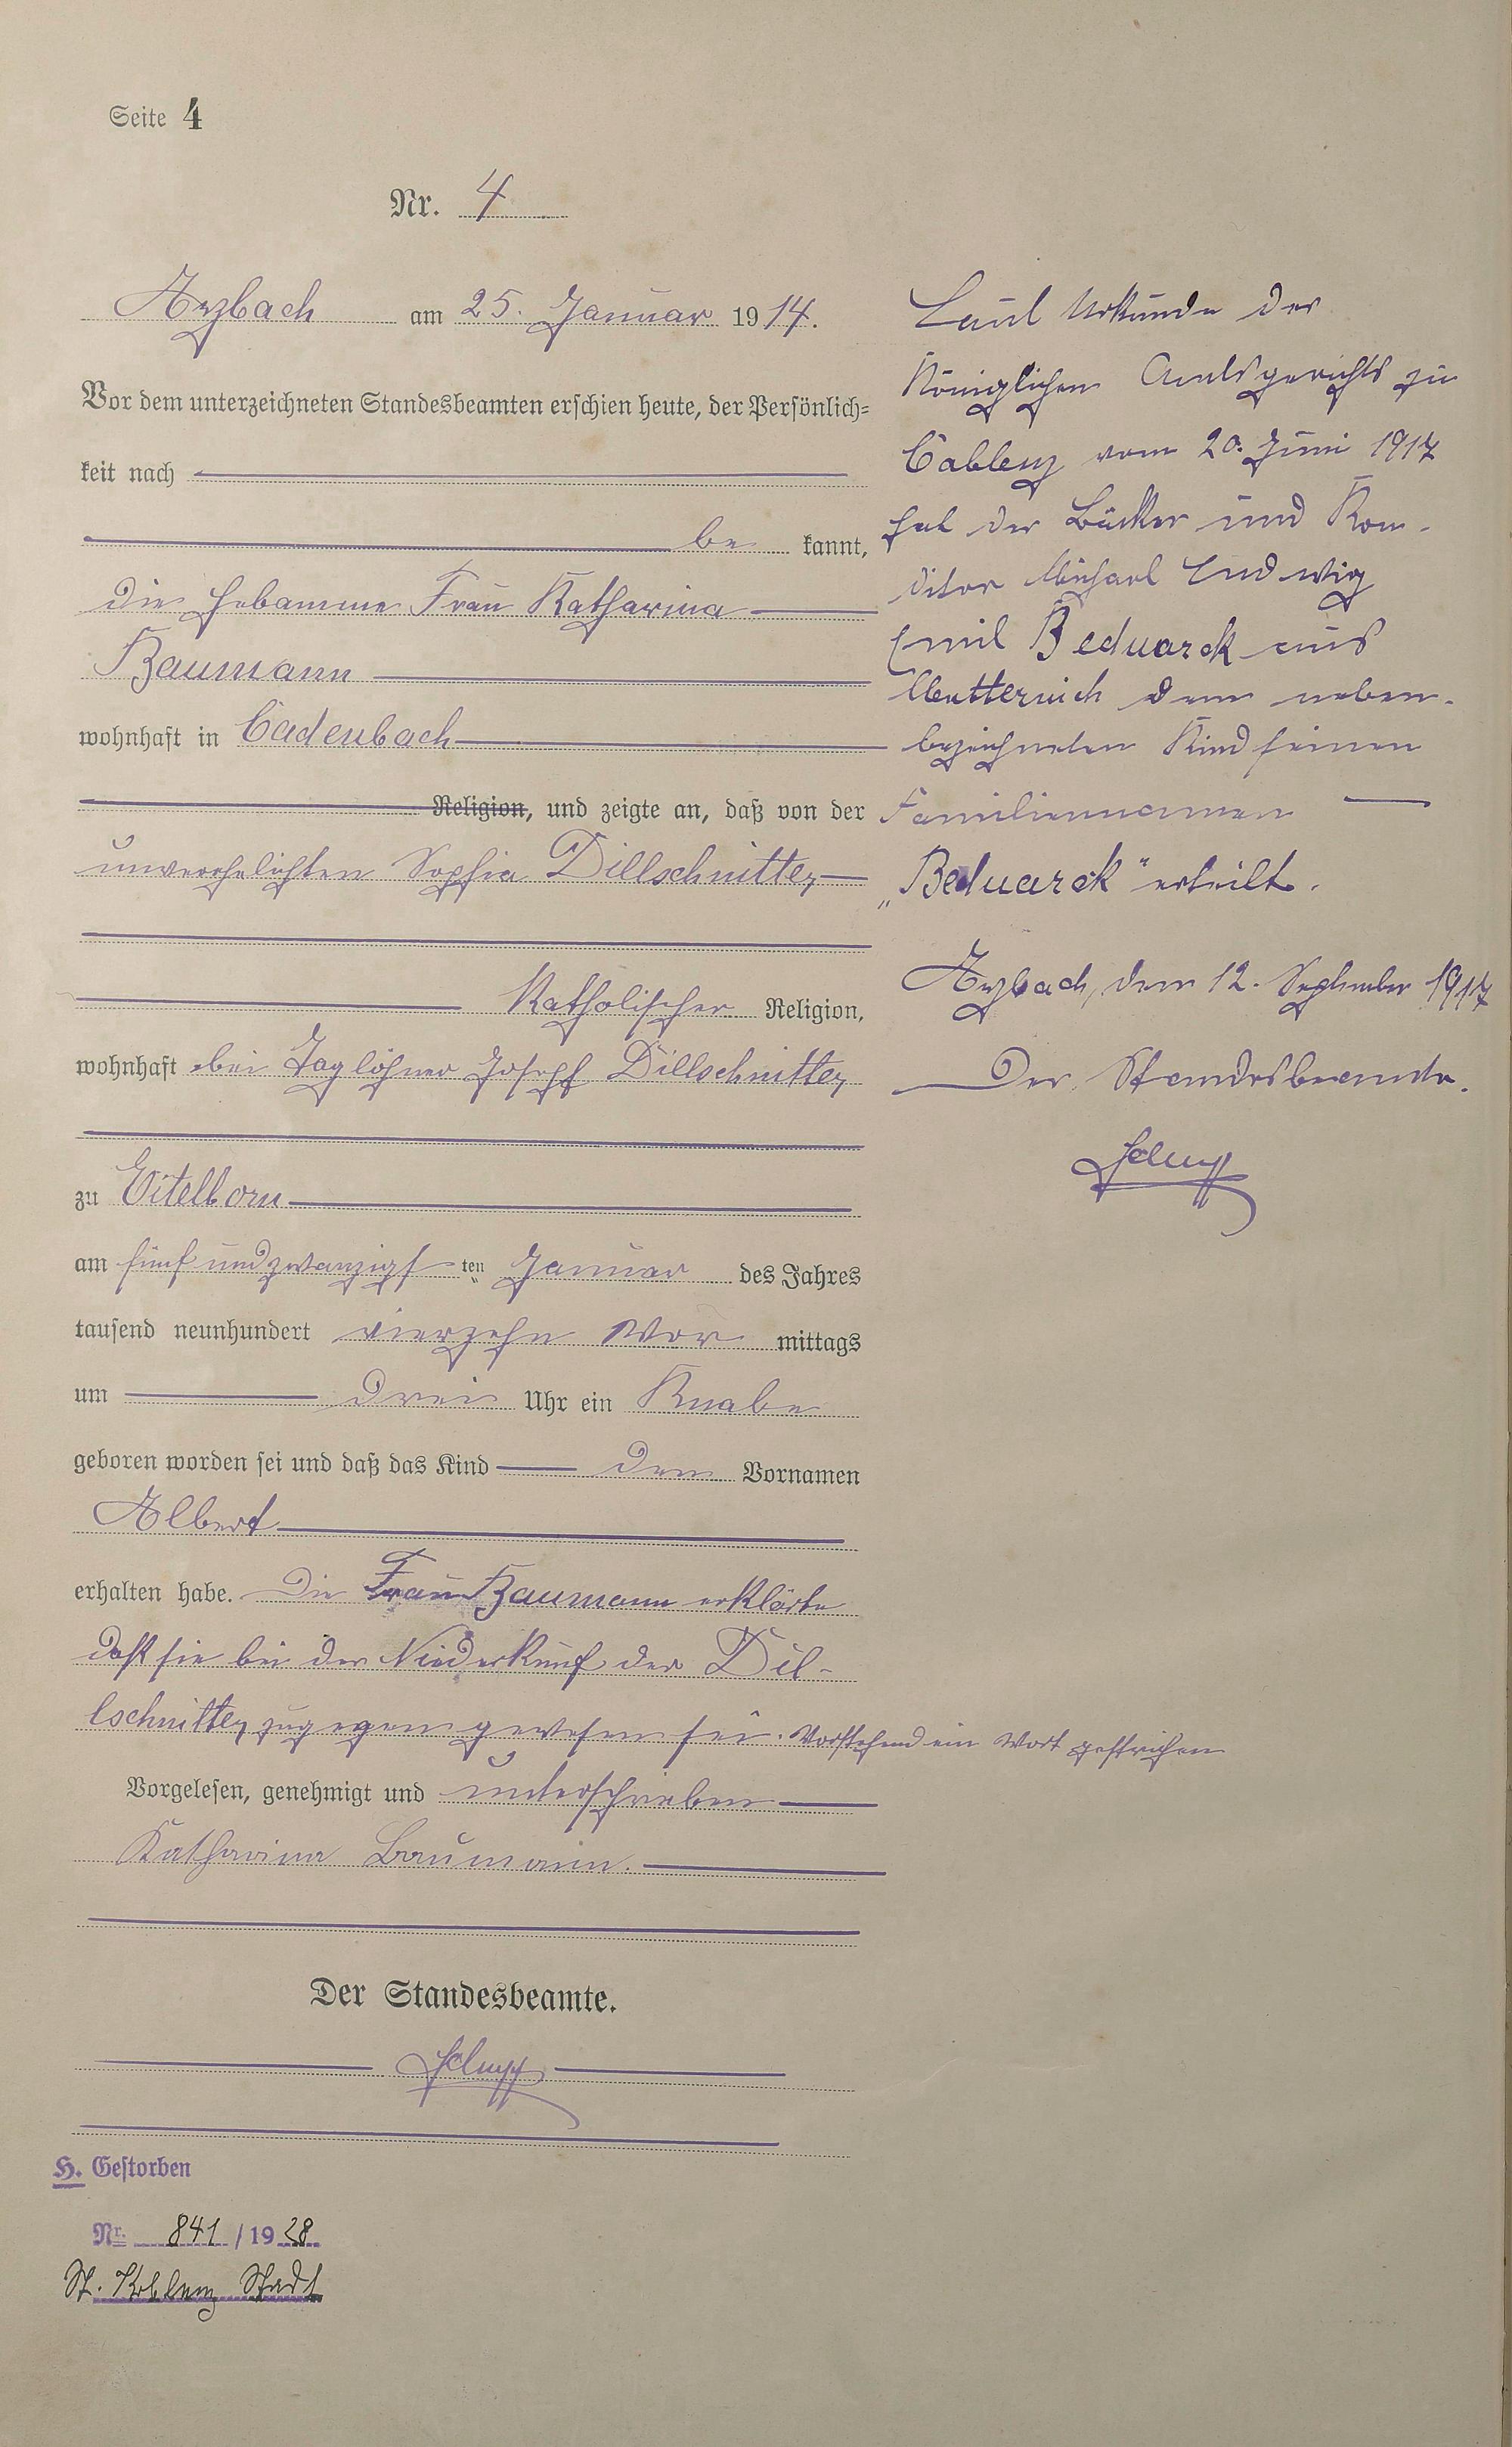 Seite 4
Nr. 4
Arzbach am 25. Januar 1914.
Vor dem unterzeichneten Standesbeamten erschien heute, der Persönlich=
keit nach
be kannt,
die Hebamme Frau Katharina
Baumann
wohnhaft in Cadenbach
Religion, und zeigte an, daß von der
unverehelichten Sophia Dillschnitter
Katholischer Religion,
wohnhaft bei Taglöhner Joseph Dillschnitter
zu Eitelborn
am fünf und zwanzigs ten Januar des Jahres
tausend neunhundert vierzehn Vor mittags
um drei Uhr ein Knabe
geboren worden sei und daß das Kind den Vornamen
Albert
erhalten habe. Die Frau Baumann erklärte
daß sie bei der Niederkunf der Dil-
lschnitter zugegen gewesen sei. Vorstehend ein Wort gestrichen
Vorgelesen, genehmigt und unterschrieben
Katharina Baumann.
Der Standesbeamte.
H. Gestorben
Nr. 841 / 1928
St. Koblenz Stadt
Laut Urkunde des
Königlichen Amtsgerichts zu
Coblenz vom 20. Juni 1917
hat der Bäcker und Kon-
ditor Michael Ludwig
Emil Bednarck aus
Metternich dem neben-
bezeichneten Kind seinen
Familiennamen
„Bednarck" erteilt.
Arzbach, den 12. September 1917
Der Standesbeamte.